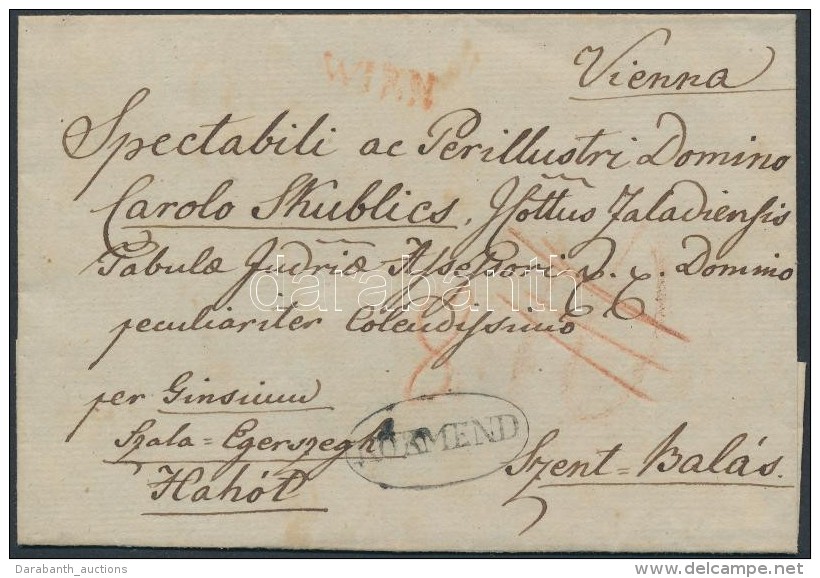 WIEN
Vienna
Spectabili ac Perillustri Domino
Carolo Skublics, Jₙcottus Zaladiensis
Tabulæ Judriæ Assessori &. &. Domino
peculiariter Colendissimo
per Ginsium
Szala=Egerszegh
Hahót
KÖRMEND
Szent=Balás.
darabanth
Darabanth_auctions
delcampe.net